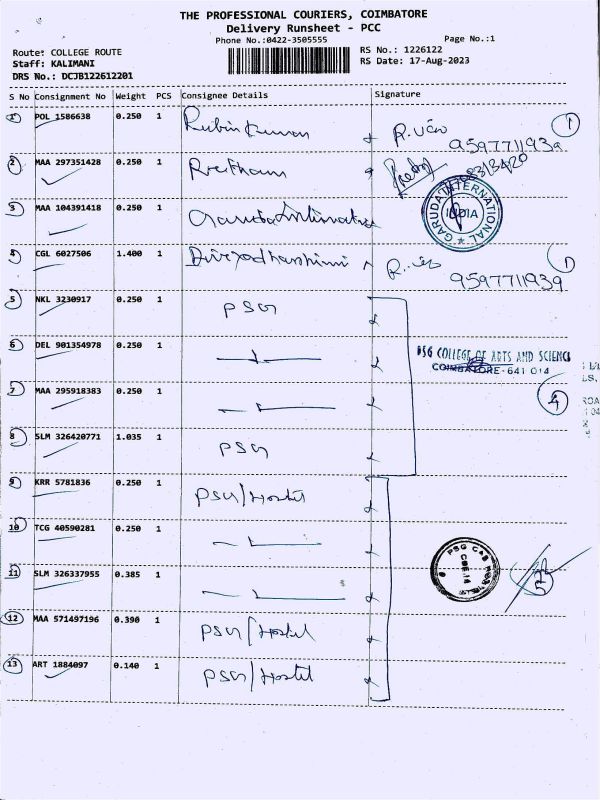 THE PROFESSIONAL COURIERS, COIMBATORE
Delivery Runsheet - PCC
Phone No.:0422-3505555 Page No.:1
Route: COLLEGE ROUTE RS No.: 1226122
Staff: KALIMANI RS Date: 17-Aug-2023
DRS No.: DCJB122612201
S No Consignment No Weight PCS Consignee Details Signature
1 POL 1586638 0.250 1 1
9597711939
2 MAA 297351428 0.250 1
3 MAA 104391418 0.250 1 Garuda International
GARUDA INTERNATIONAL INDIA
4 CGL 6027506 1.400 1 Divyadharshini 1
9597711939
5 NKL 3230917 0.250 1 PSG
6 DEL 901354978 0.250 1
PSG COLLEGE OF ARTS AND SCIENCE
COIMBATORE-641 014
7 MAA 295918383 0.250 1 4
8 SLM 326420771 1.035 1 PSG
9 KRR 5781836 0.250 1 PSG/Hostel
10 TCG 40590281 0.250 1
11 SLM 326337955 0.385 1 5
12 MAA 571497196 0.390 1 PSG/Hostel
13 ART 1884097 0.140 1 PSG/Hostel